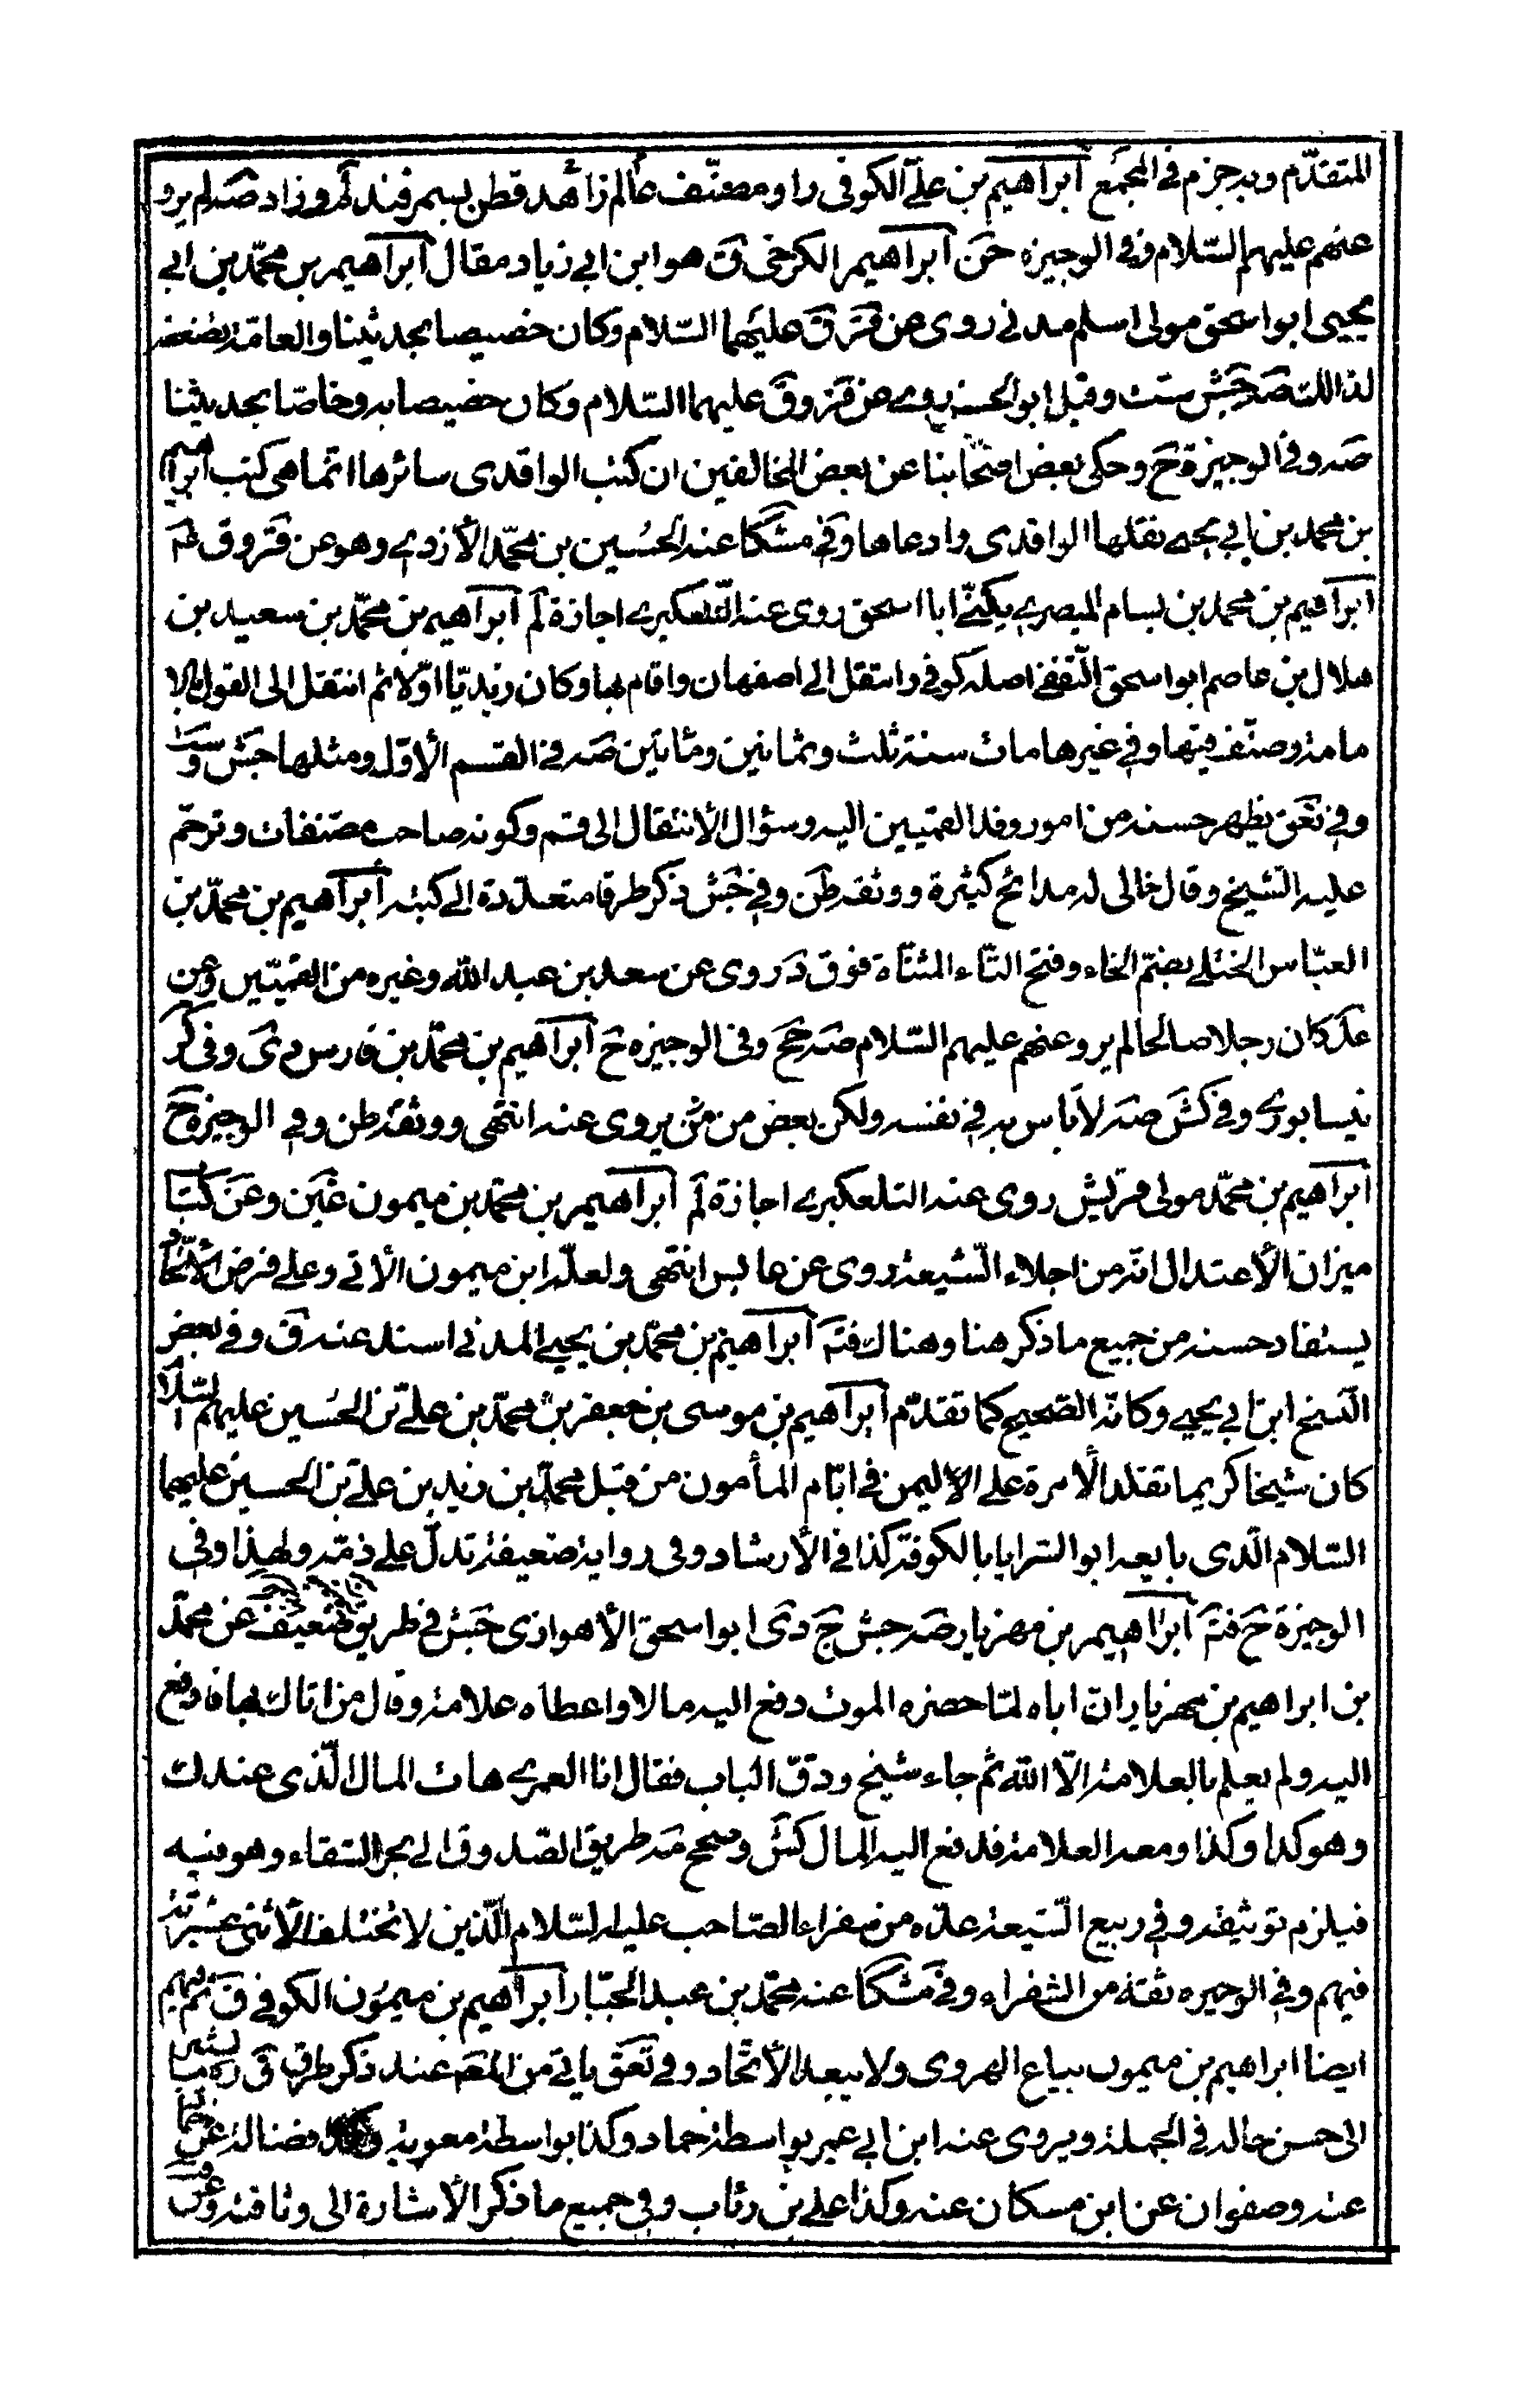 المتقدّم وبه جزم في المجمع ابراهيم بن علىّ الكوفى راو ومصنّف عالم زاهد قطن بسمرقند لم وزاد صه لم يرو
عنهم عليهم السّلام وفى الوجيزه ح ابراهيم الكرخى ق هو ابن ابى زياد مقال ابراهيم بن محمّد بن ابى
يحيى ابو اسحق مولى اسلم مدنى روى عن قر ق عليهما السّلام وكان خصيصا بحديثنا والعامّة تضعفه
لذلك صه جش ست وقيل ابو الحسن روى عن قر وق عليهما السّلام وكان خصيصا به وخاصّا بحديثنا
صه وفى الوجيزة ح وحكى بعض اصحابنا عن بعض المخالفين ان كتب الواقدى سائرها انّما هى كتب ابراهيم
بن محمد بن ابى يحيى نقلها الواقدى وادعاها وفى مشكا عنه الحُسين بن محمّد الأزدى وهو عن قر وق
ابراهيم بن محمد بن بسام المصرى يكنّى ابا اسحق روى عنه التلعكبرى اجازة لم ابراهيم بن محمّد بن سعيد بن
هلال بن عاصم ابو اسحق الثّقفى اصله كوفى وانتقل الى اصفهان واقام بها وكان زيديّا اوّلا ثم انتقل الى القول بالا
مامة وصنّف فيها وفى غيرها مات سنة ثلث وثمانين ومأتين صه فى القسم الأوّل ومثلها جش وست
وفى تعق يظهر حسنه من امور وفد القميين اليه وسؤال الأنتقال الى قم وكونه صاحب مصّنفات وترحّم
عليه الشّيخ وقال خالى له مدائح كثيرة ووثقه طس وفى جش ذكر طرقا متعدّدة الى كتبه ابراهيم بن محمّد بن
العبّاس الختلى بضمّ الخاء وفتح التّاء المثنّاة فوق د روى عن سعد بن عبد اللّه وغيره من القميّين وعن
على كان رجلا صالحا لم يرو عنهم عليهم السّلام صه جخ وفى الوجيزه ح ابراهيم بن محمّد بن فارس دى وفى كر
نيسابورى وفى كش صه لا باس به فى نفسه ولكن بعض من يروى عنه انتهى ووثقه طس وفى الوجيزة ح
ابراهيم بن محمّد مولى قريش روى عنه التلعكبرى اجازة لم ابراهيم بن محمّد بن ميمون وعن كتاب
ميزان الأعتدال انّه من اجلاء الشّيعة روى عن عابس انتهى ولعلّه ابن ميمون الأتى وعلى فرض الأتّحاد
يستفاد حسنه من جميع ما ذكر هنا وهناك فتم ابراهيم بن محمّد بن يحيى المدنى اسند عنه ق وفى بعض
النّسخ ابن ابى يحيى وكانّه الصّحيح كما تقدّم ابراهيم بن موسى بن جعفر بن محمّد بن علىّ بن الحُسين عليهم السّلام
كان شيخا كريما تقلد الأمرة على اليمن فى ايّام المأمون من قبل محمّد بن زيد بن علىّ بن الحسين عليهما
السّلام الّذى بايعه ابو السّرايا بالكوفة كذا فى الأرشاد وفى رواية ضعيفة تدلّ على ذمّه ولهذا وفى
الوجيزة ح فتم ابراهيم بن مهزيار صه جش ج دى ابو اسحق الأهوازى جش فى طريق ضعيف عن محمّد
بن ابراهيم بن مهزيار انّ اباه لمّا حضره الموت دفع اليه مالا واعطاه علامة وقال من اتاك بها فادفع
اليه ولم يعلم بالعلامة الّا اللّه ثم جاء شيخ ودقّ الباب فقال انا العمرى هات المال الّذى عندك
وهو كذا وكذا ومعه العلامة فدفع اليه المال كش وصحح مه طريق الصّدوق الى بحر السّقاء وهو فيه
فيلزم توثيقه وفى ربيع الشّيعة عدّه من سفراء الصّاحب عليه السّلام الّذين لا تختلف الأثنى عشريّة
فيهم وفى الوجيزه ثقة من السّفراء وفى مشكا عنه محمّد بن عبد الجبّار ابراهيم بن ميمون الكوفى ق ثم فيهم
ايضا ابراهيم بن ميمون بياع الهروى ولا يبعد الأتّحاد وفى تعق ياتى من المصّ عند ذكر طرق ق ره ما يشير
الى حسن حاله فى الجملة ويروى عنه ابن ابى عمير بواسطة حماد وكذا بواسطة معوية وكذا فضالة عن حماد
عنه وصفوان عن ابن مسكان عنه وكذا على بن رئاب وفى جميع ما ذكر الأشارة الى وثاقته وعن